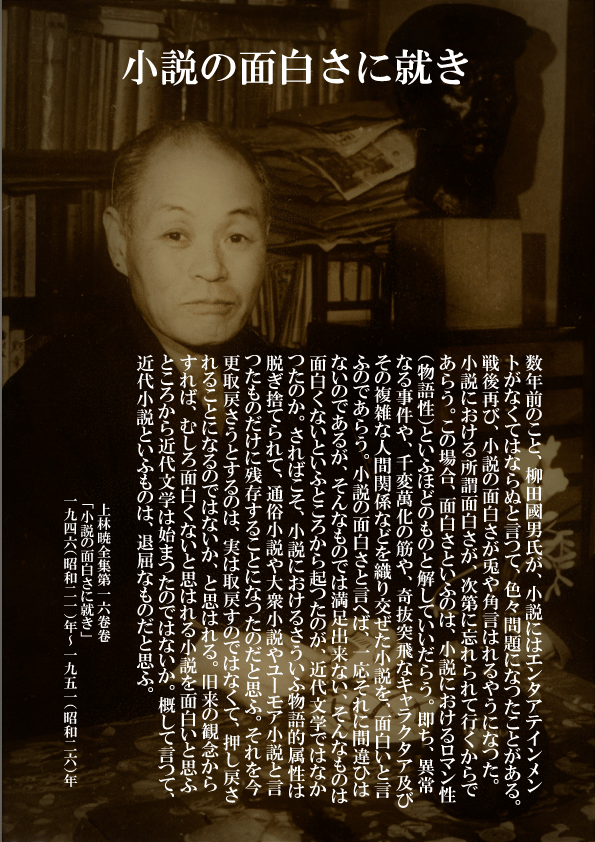 小説の面白さに就き
数年前のこと、柳田國男氏が、小説にはエンタアテインメン
トがなくてはならぬと言つて、色々問題になつたことがある。
戦後再び、小説の面白さが兎や角言はれるやうになつた。
小説における所謂面白さが、次第に忘れられて行くからで
あらう。この場合、面白さといふのは、小説におけるロマン性
（物語性）といふほどのものと解していいだらう。即ち、異常
なる事件や、千変萬化の筋や、奇抜突飛なキャラクタア及び
その複雑な人間関係などを織り交ぜた小説を、面白いと言
ふのであらう。小説の面白さと言へば、一応それに間違ひは
ないのであるが、そんなものでは満足出来ない、そんなものは
面白くないといふところから起つたのが、近代文学ではなか
つたのか。さればこそ、小説におけるさういふ物語的属性は
脱ぎ捨てられて、通俗小説や大衆小説やユーモア小説と言
つたものだけに残存することになつたのだと思ふ。それを今
更取戻さうとするのは、実は取戻すのではなくて、押し戻さ
れることになるのではないか、と思はれる。旧来の観念から
すれば、むしろ面白くないと思はれる小説を面白いと思ふ
ところから近代文学は始まつたのではないか。概して言つて、
近代小説といふものは、退屈なものだと思ふ。
上林暁全集第一六巻巻
「小説の面白さに就き」
一九四六（昭和二一）年～一九五一（昭和二六）年